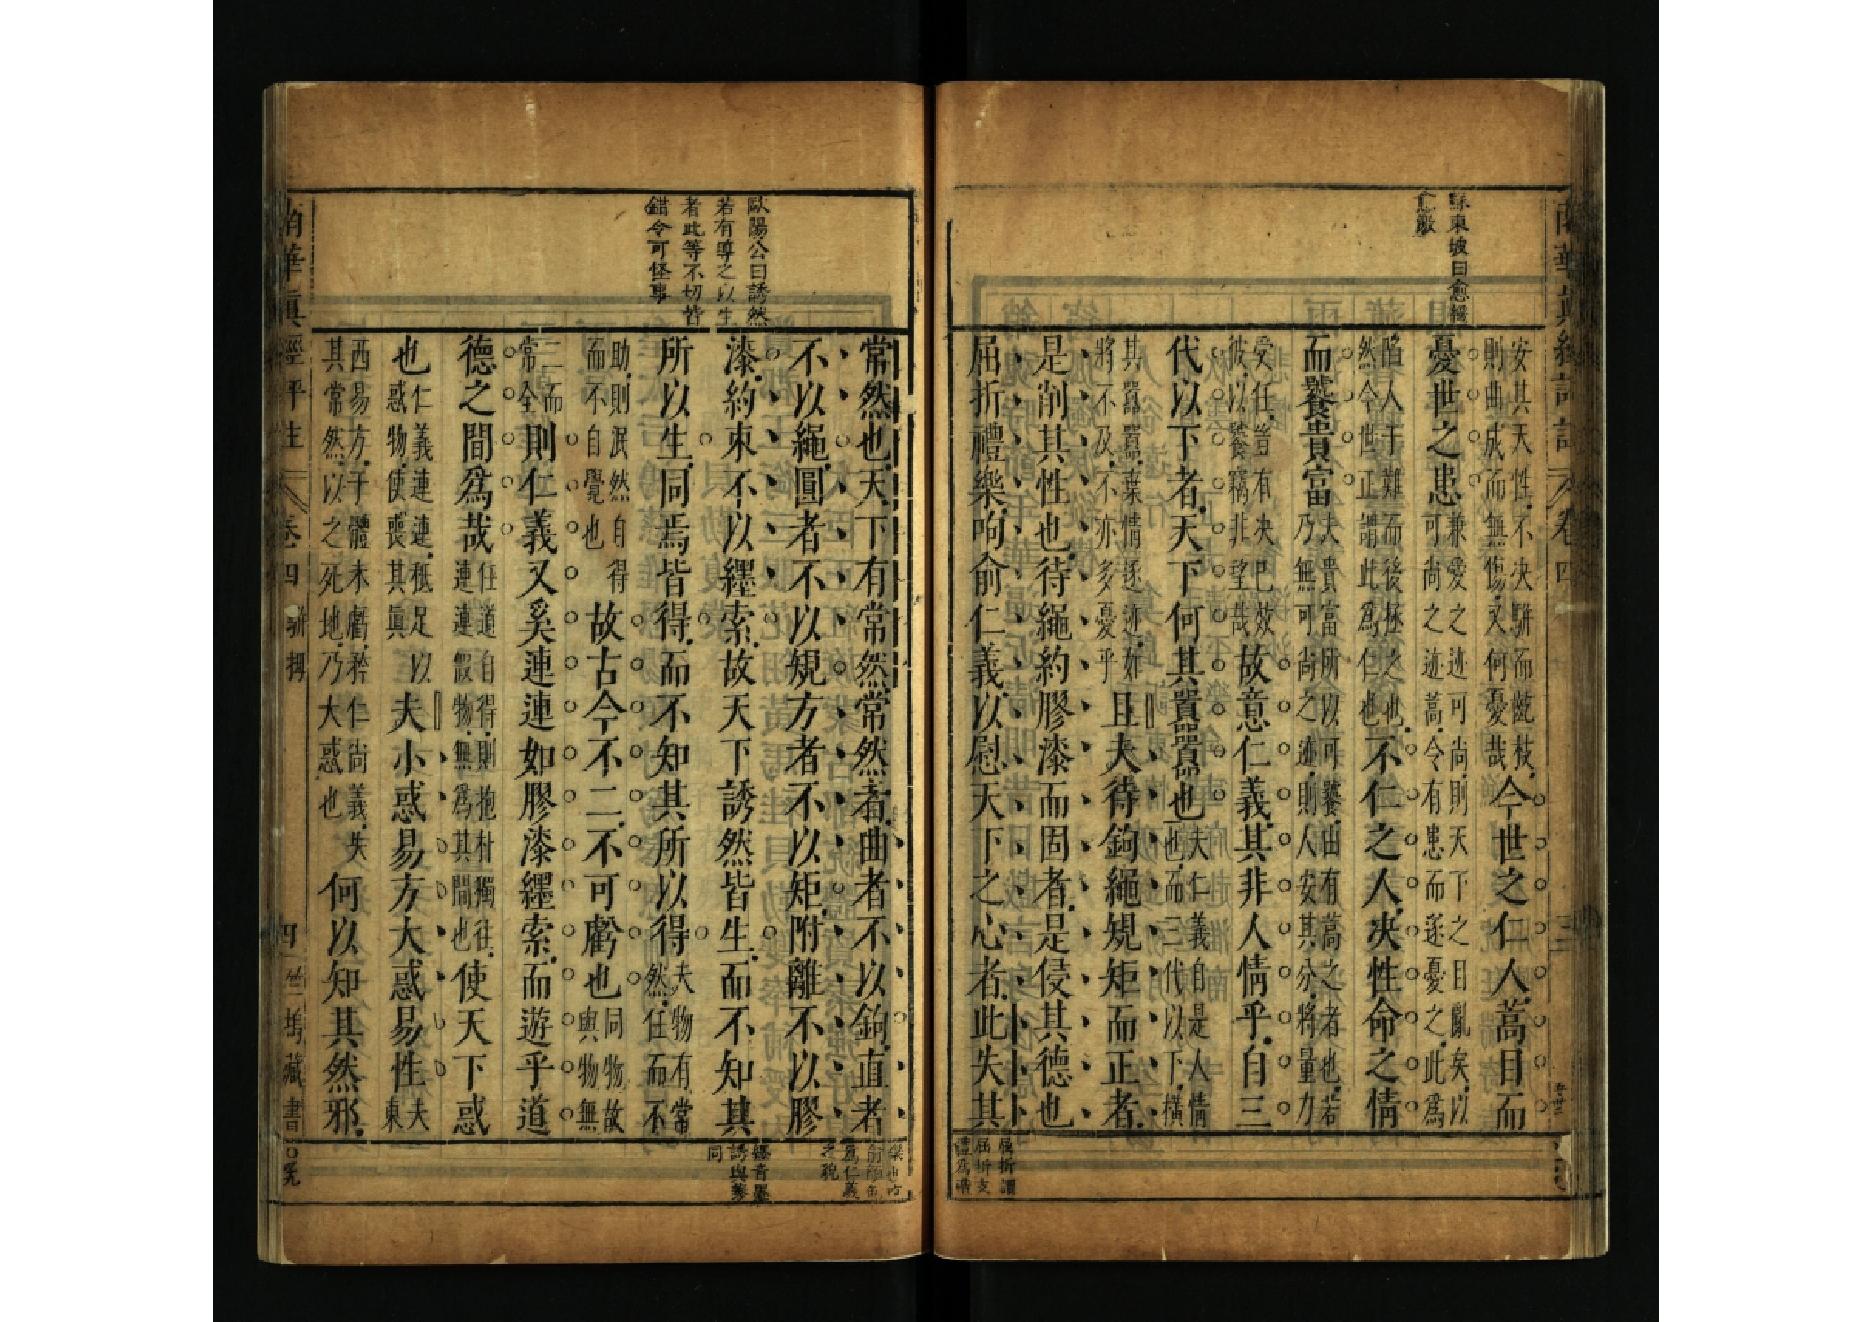 蘇東坡曰愈轉
愈嚴
安其天性不決駢而齕枝
則曲成而無傷又何憂哉
今世之仁人蒿目而
憂世之患
兼愛之迹可尚則天下之目亂矣以
可尚之迹蒿令有患而遂憂之此爲
陷人於難而後拯之也
然今世正謂此爲仁也
不仁之人決性命之情
而饕貴富
夫貴富所以可饕由有蒿之者也若
乃無可尚之迹則人安其分將量力
受任豈有決已效
彼以饕竊非望哉
故意仁義其非人情乎自三
代以下者天下何其囂囂也
夫仁義自是人情
也而三代以下橫
其囂囂棄情逐迹如
將不及不亦多憂乎
且夫待鉤繩規矩而正者
是削其性也待繩約膠漆而固者是侵其德也
屈折禮樂呴俞仁義以慰天下之心者此失其
屈折謂
屈折支
體爲禮
歐陽公曰誘然
若有導之以生
者此等不切皆
錯令可怪事
常然也天下有常然常然者曲者不以鉤直者
不以繩圓者不以規方者不以矩附離不以膠
漆約束不以纆索故天下誘然皆生而不知其
所以生同焉皆得而不知其所以得
夫物有常
然任而不
助則泯然自得
而不自覺也
故古今不二不可虧也
同物故
與物無
二而
常全
則仁義又奚連連如膠漆纆索而遊乎道
德之間爲哉
任道自得則抱朴獨往
連連假物無爲其間也
使天下惑
也
仁義連連秪足以
惑物使喪其眞
夫小惑易方大惑易性
夫東
西易方于體未虧矜仁尚義失
其常然以之死地乃大惑也
何以知其然邪
樂也
爲仁義
之貌
纆音墨
誘與莠
同
南華眞經評註
卷四
駢拇
四
竺塢藏書